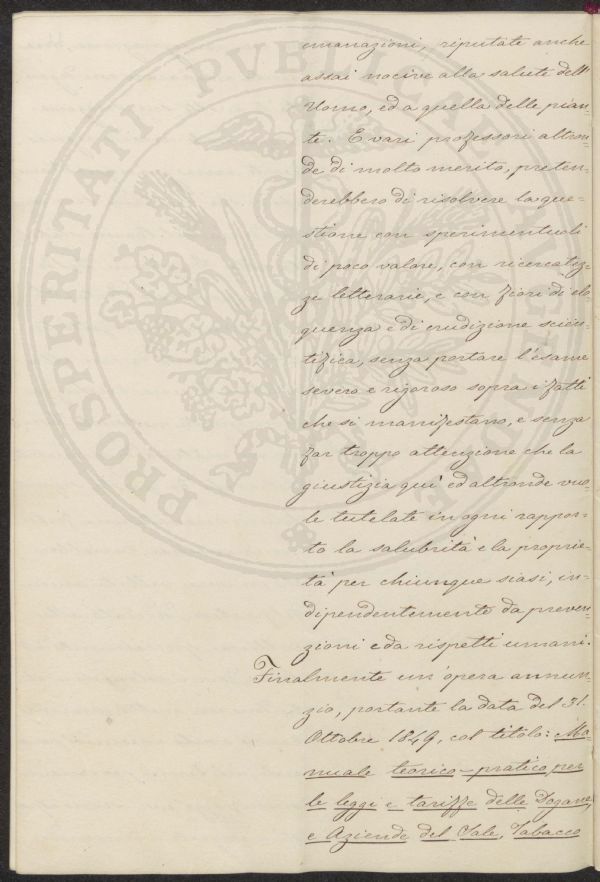 emanazioni, riputate anche
assai nocive alla salute dell'
Uomo, ed a quella delle pian-
te. E vari professori altron-
de di molto merito, preten-
derebbero di risolvere la que-
stione con sperimentucoli
di poco valore, con ricercatez-
ze letterarie, e con fiori di elo-
quenza e di erudizione scien-
tifica, senza portare l'esame
severo e rigoroso sopra i fatti
che si manifestano, e senza
far troppo attenzione che la
giustizia quì ed altronde vuo-
le tutelate in ogni rappor-
to la salubrità e la proprie-
tà per chiunque siasi, in-
dipendentemente da preven-
zioni e da rispetti umani.
Finalmente un'opera annun-
zio, portante la data del 31.
Ottobre 1849, col titolo: Ma-
nuale teorico-pratico per
le leggi e tariffe delle Dogane,
e Aziende del Sale, Tabacco
PROSPERITATI PVBLICAE